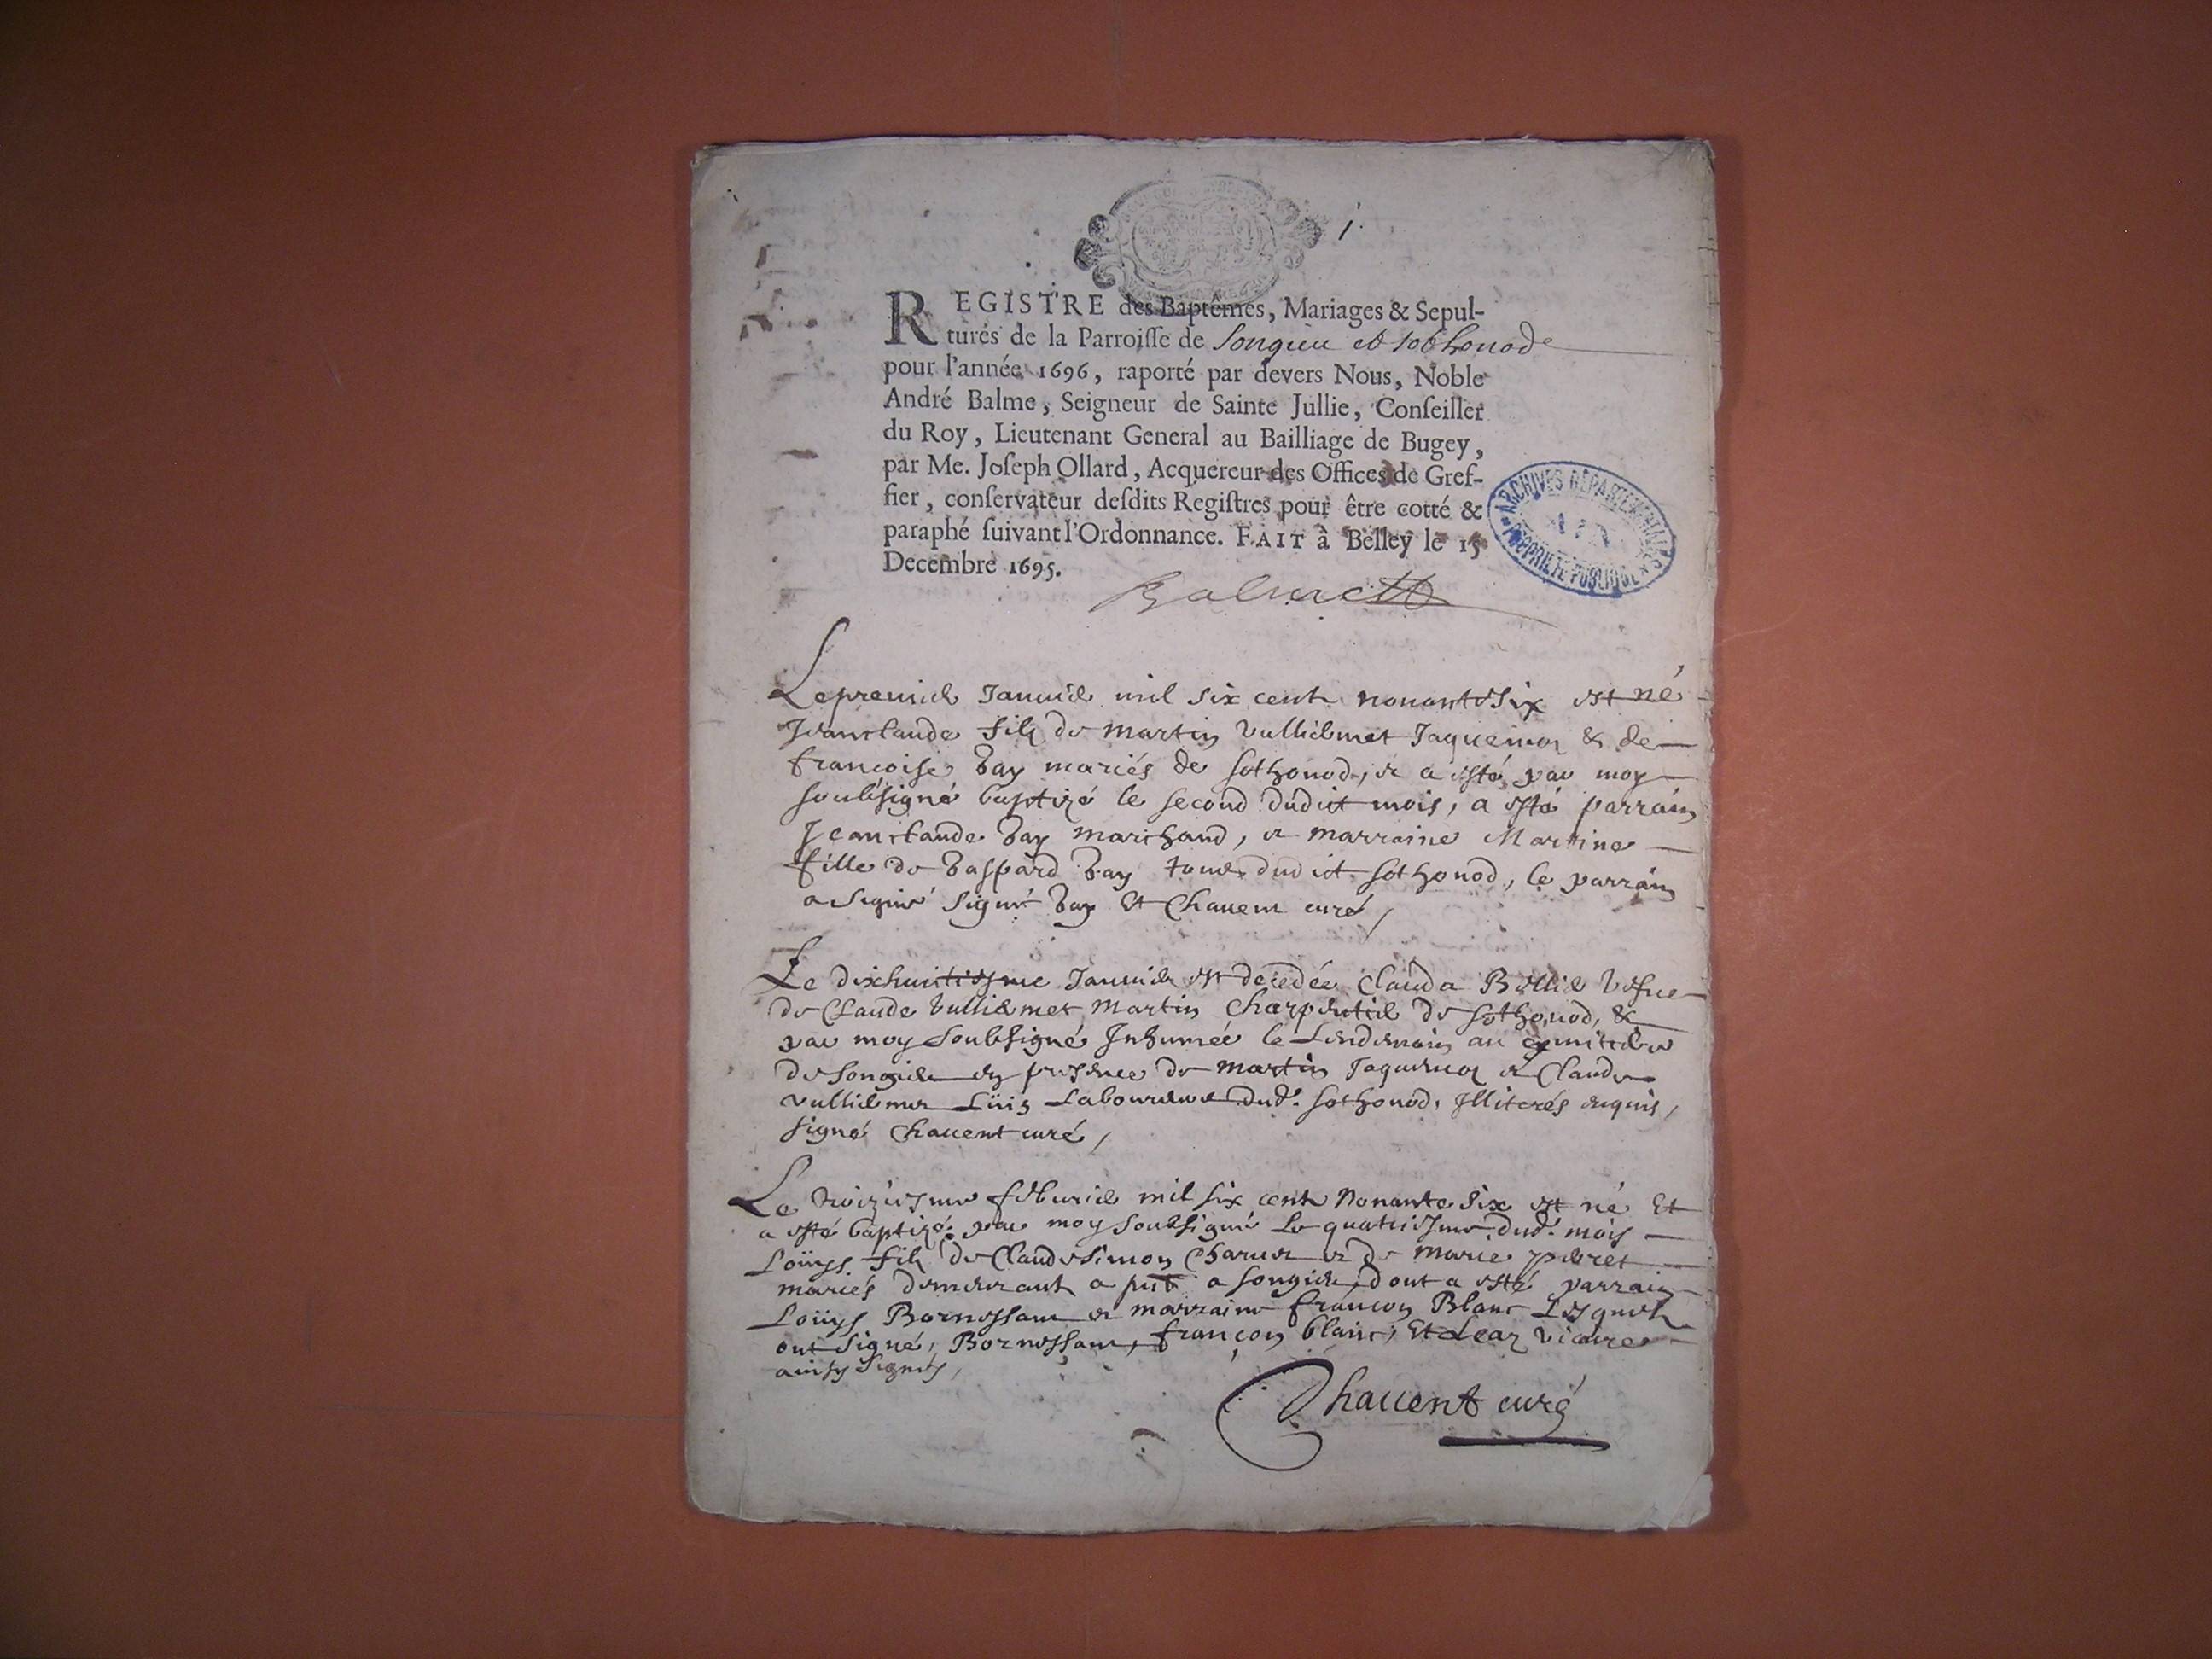 1.
REGISTRE des Baptêmes, Mariages & Sepul-
tures de la Parroisse de Songieu et sothonod
pour l'année 1696, raporté par devers Nous, Noble
André Balme, Seigneur de Sainte Jullie, Conseiller
du Roy, Lieutenant General au Bailliage de Bugey,
par Me. Joseph Ollard, Acquereur des Offices de Gref-
fier, conservateur desdits Registres pour être cotté &
paraphé suivant l'Ordonnance. FAIT à Belley le 15
Decembre 1695.
ARCHIVES DÉPARTEMENTALES
PROPRIÉTÉ PUBLIQUE
Le premier Januier mil six cent nonantesix est né
Jeanclaude filz de Martin Vulliemet Jaquemoz & de
francoise bay mariés de sothonod, et a esté par moy
soubsigné baptizé le second dudict mois, a esté parrain
Jeanclaude bay marchand, et marraine Martine
fille de Gaspard bay tous dudict sothonod, le parrain
a signé signé bay Et Chauent curé,
Le dixhuictiesme Januier est decedée Clauda Vefue
de Claude Vulliemet Martin Charpentier de sothonod, &
par moy soubsigné Inhumée le Lendemain au cymitiere
de songieu en presence de Martin Jaquemoz et Claude
vulliemet Laboureurs dud. sothonod, Illiterés enquis,
signé Chauent curé,
Le troiziesme feburier mil six cent Nonante six est né Et
a esté baptizé par moy soubsigné le quatriesme dud. mois
Loüys filz de Claudesimon Charuet et de Marie peret
mariés demeurant a songieu, dont a esté parrain
Loüys et marraine françon Blanc Lesquels
ont signé, françon blanc, Et vicaire
ainsy signés,
Chauent curé